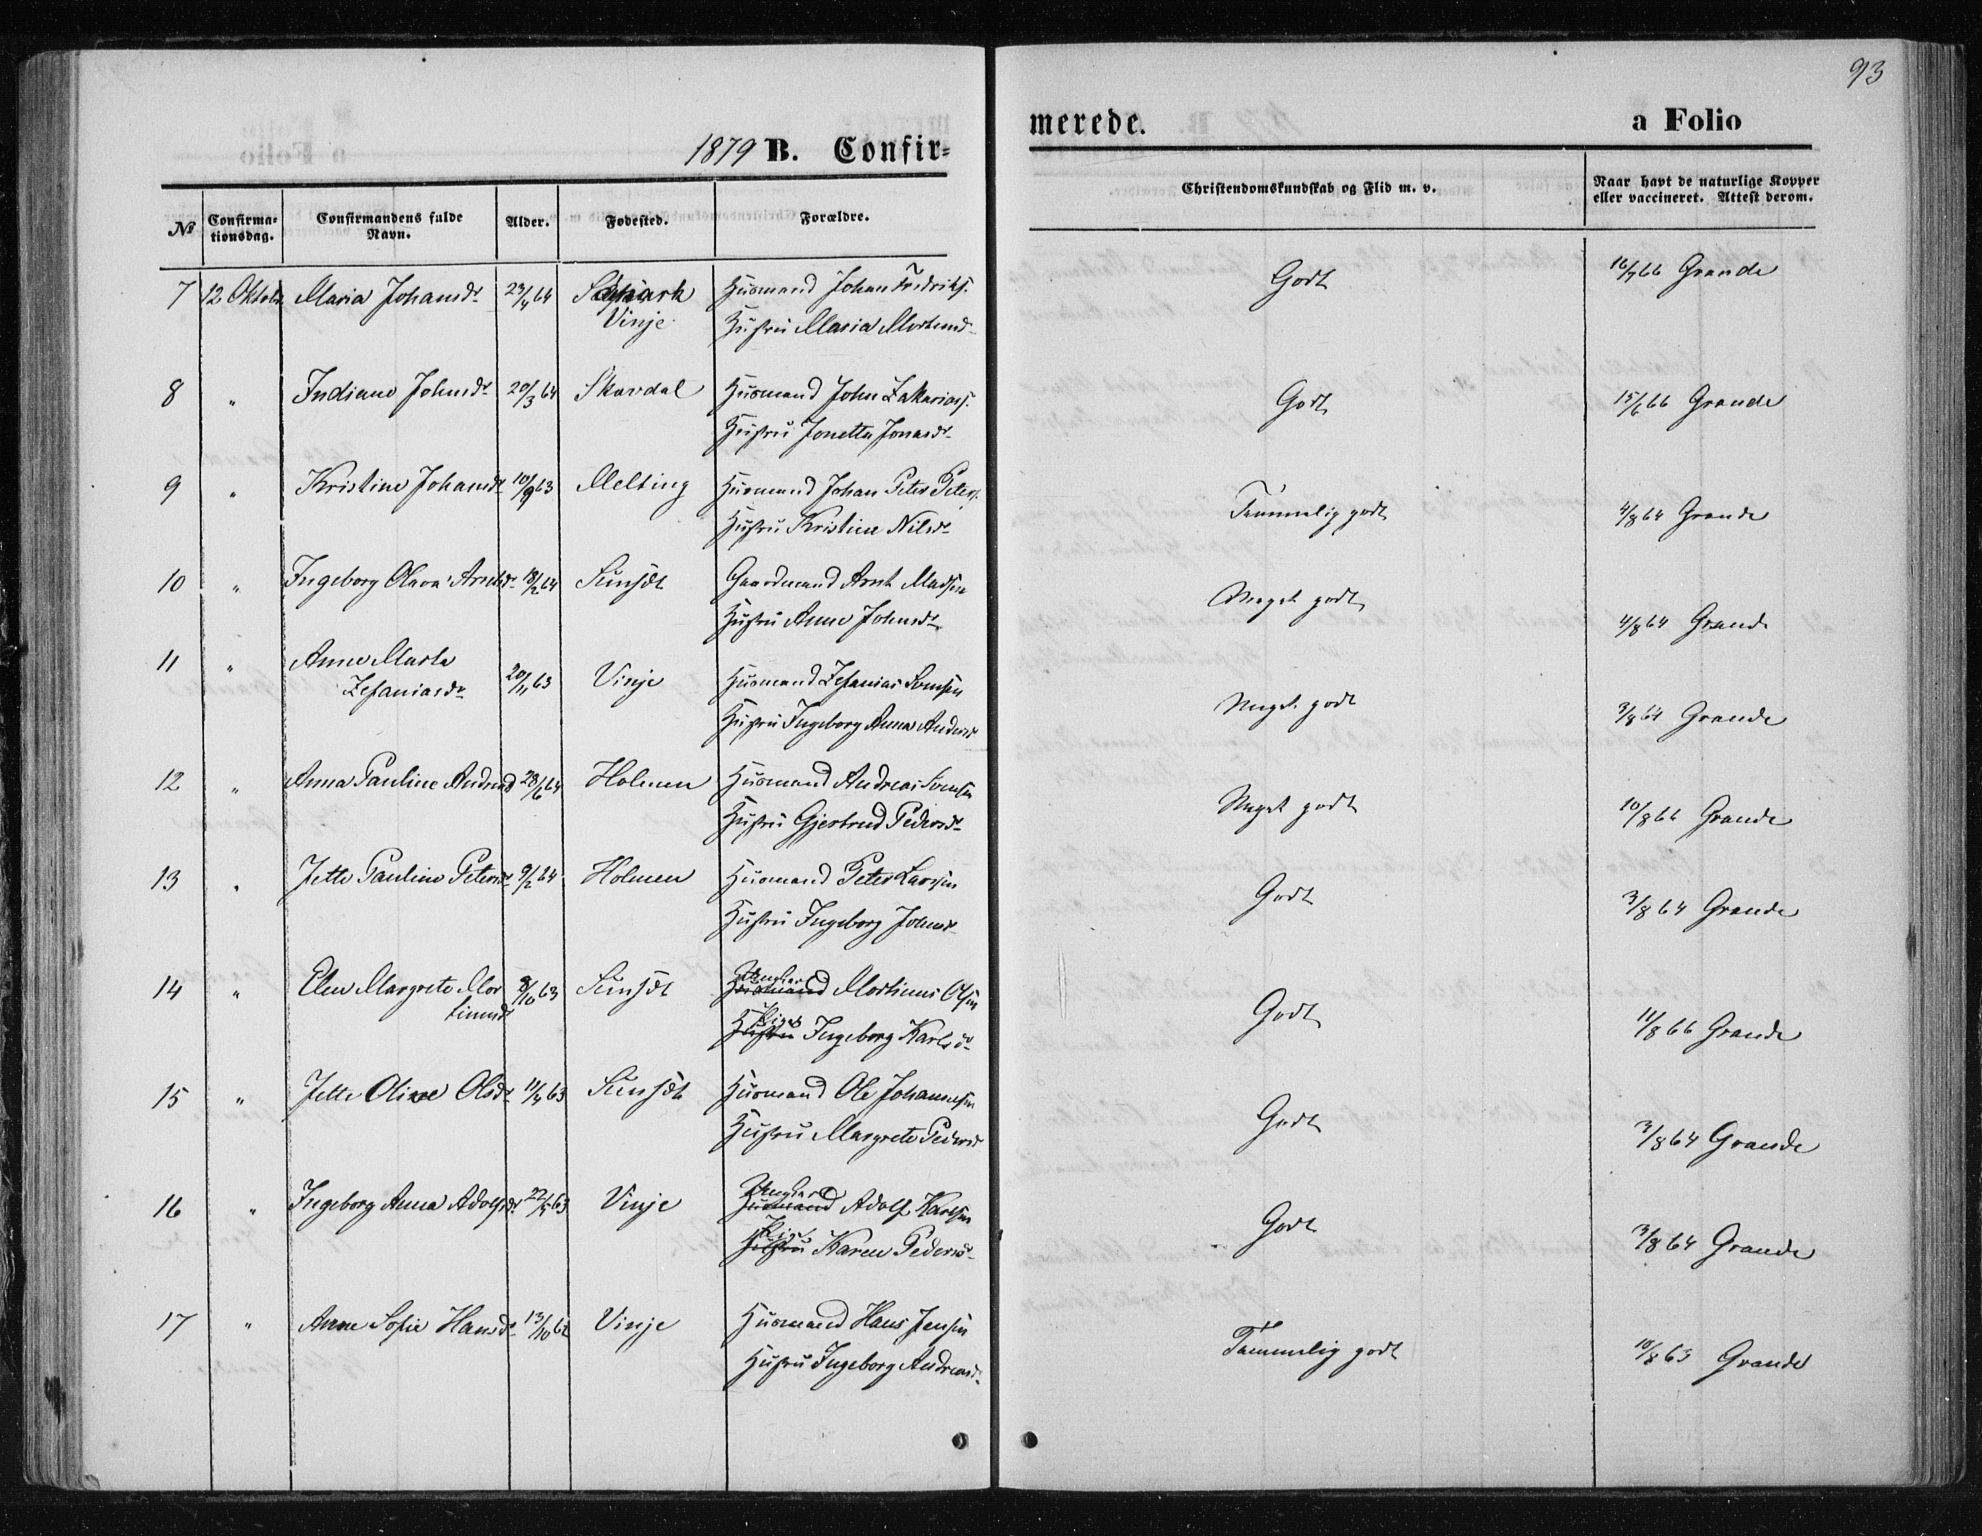 93
1879 B. Confir=
merede.
a Folio
No
Confirma-
tionsdag.
Confirmandens fulde
Navn.
Alder.
Fødested.
Forældre.
Christendomskundskab og Flid m. v.
Naar havt de naturlige Kopper
eller vaccineret. Attest derom.
7 12 Oktobr Maria Johansdr 23/4 64 Husmand Johan Fredriks. Godt 16/7 66 Grande
Vinje Hustru Maria Mortensd
8 " Indiane Johnsdr 20/3 64 Skavdal Husmand John Zakarias. Godt 15/6 66 Grande
Hustru Jonetta Jonasdr
9 " Kristine Johansdr 10/9 63 Melting Husmand Johan Peter Peters. Temmelig godt 4/8 64 Grande
Hustru Kristine Nilsdr
10 " Ingeborg Olava Arntsdr 18/2 64 Sunsæt Gaardmand Arnt Madsen Meget godt 4/8 64 Grande
Hustru Anne Johnsdr
11 " Anne Marta
Zefaniasdr 20/11 63 Vinje Husmand Zefanias Svensen Meget godt 3/8 64 Grande
Hustru Ingeborg Anna Andersd
12 " Anna Pauline Andreasd 28/6 64 Holmen Husmand Andreas Svensen Meget godt 10/8 66 Grande
Hustru Gjertrud Pedersdr
13 " Jette Pauline Petersdr 9/2 64 Holmen Husmand Peter Larssen Godt 3/8 64 Grande
Hustru Ingeborg Johnsdr
14 " Elen Margrete Mor
tinusdr 8/10 63 Sunsæt Ungkarl Husmand Mortinus Olsen Godt 11/8 66 Grande
Pige Hustru Ingeborg Karlsdr
15 " Jette Oline Olsdr 11/4 63 Sunsæt Husmand Ole Johannesen Godt 3/8 64 Grande
Hustru Margrete Pedersd
16 " Ingeborg Anna Adolfsdr 22/5 63 Vinje Ungkarl Husmand Adolf Karlsen Godt 3/8 64 Grande
Pige Hustru Karen Pedersdr
17 " Anne Sofie Hansdr 13/10 62 Vinje Husmand Hans Jensen Temmelig godt 10/8 63 Grande
Hustru Ingeborg Andreasd